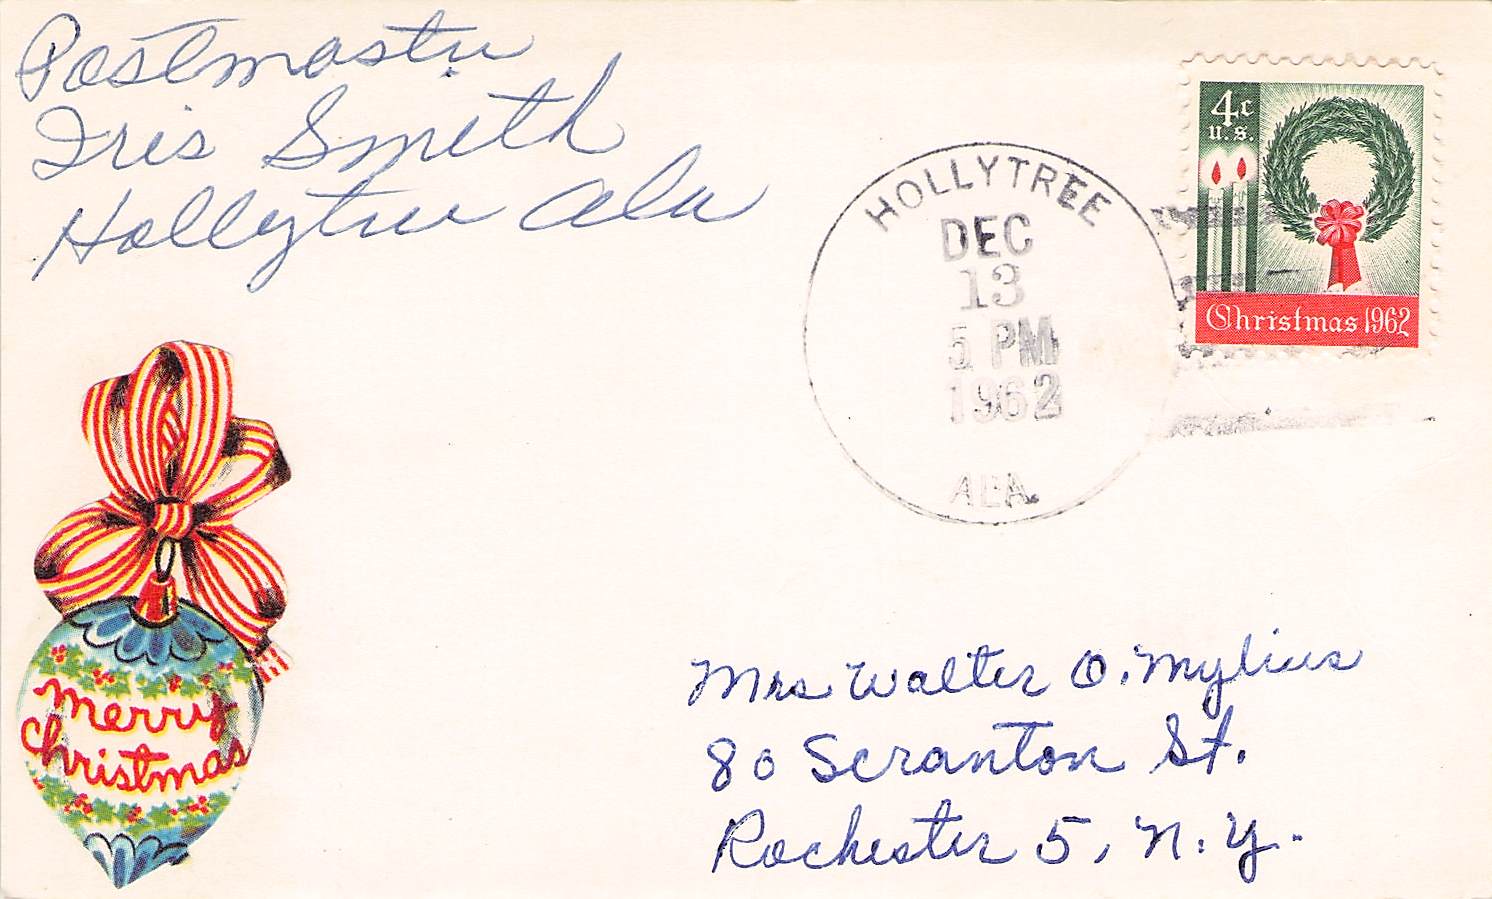 Postmaster
Iris Smith
Hollytree Ala
HOLLYTREE
DEC
13
5 PM
1962
ALA.
4c
U.S.
Christmas 1962
Merry
Christmas
Mrs Walter O. Mylius
80 Scranton St.
Rochester 5, N.Y.